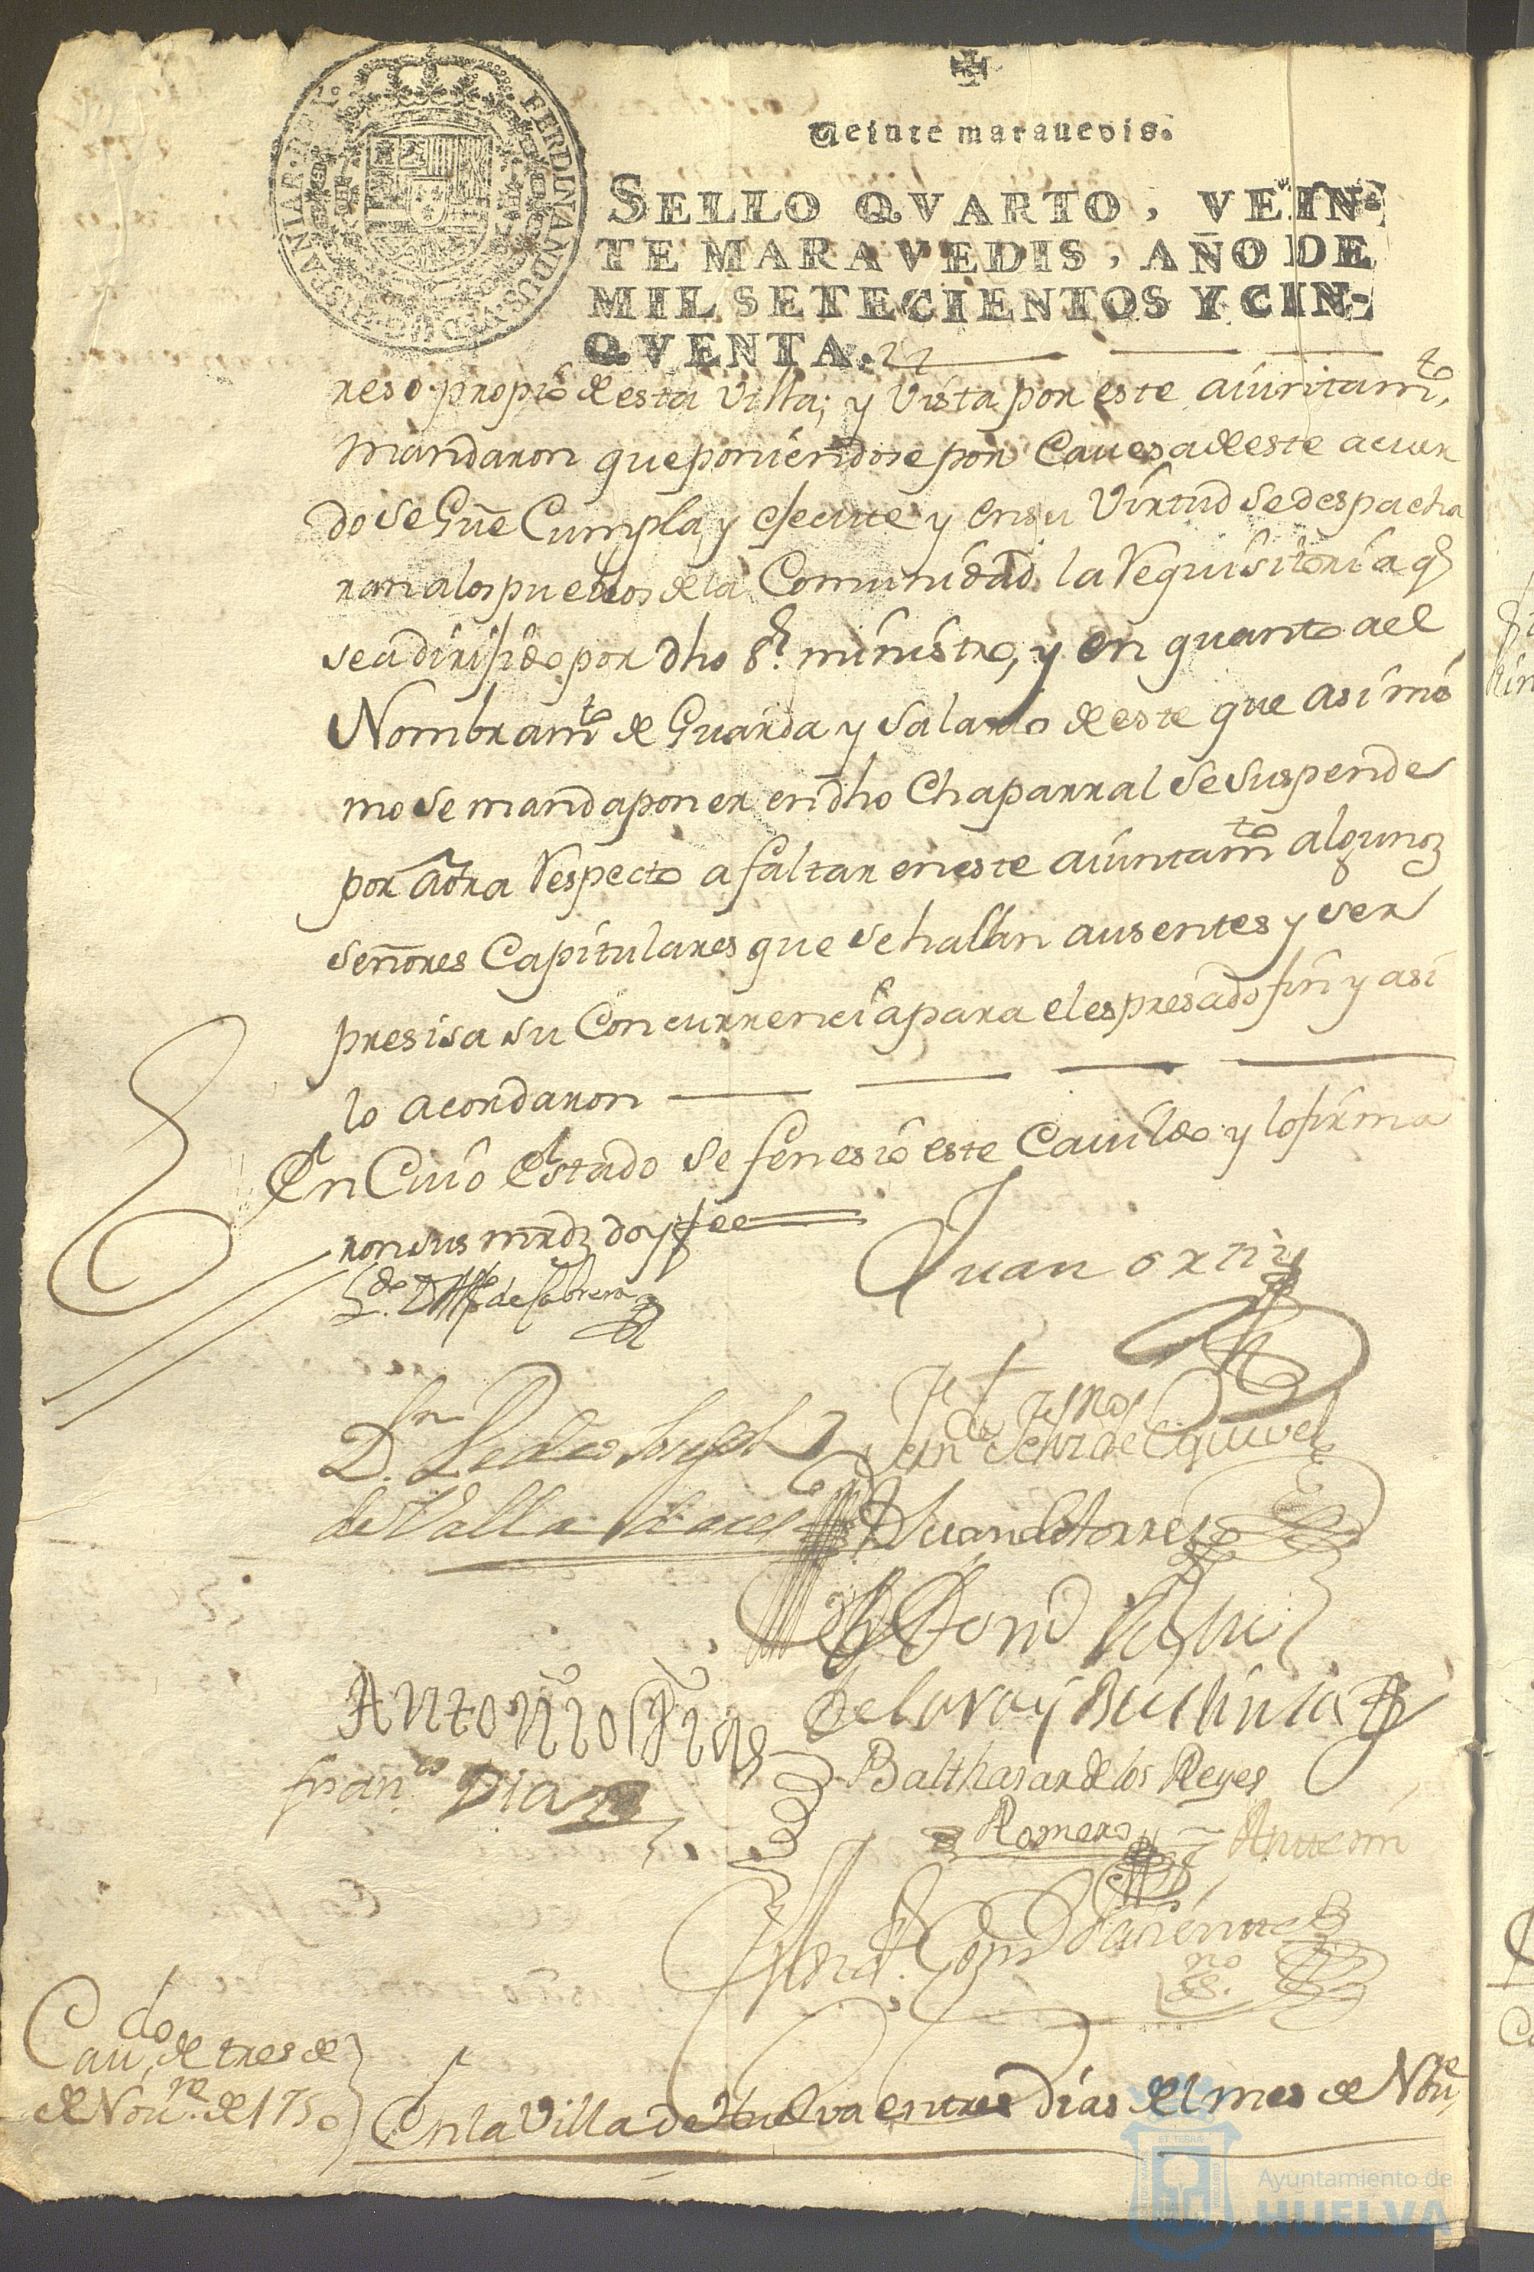 FERDINANDUS VI D G HISPANIAR REX
Veinte maravedis.
SELLO QVARTO, VEIN-
TE MARAVEDIS, AÑO DE
MIL SETECIENTOS Y CIN-
QVENTA.
reso propio de esta Villa; y Vista por este aiuntamto,
mandaron que poniendose por Cavesa de este acuer
do se Gue Cumpla y esecute y en su Virtud se despacha
ran a los pueblos de la Comunidad la Requisitoria q
se a dirijido por dho Sr. ministro, y en quanto a el
Nombramto de Guarda y Salario de este que asimis
mo se manda poner en dho Chaparral se suspende
por aora Respecto a faltar en este aiuntamto algunos
señores Capitulares que se hallan ausentes y ser
presisa su Concurrencia para el espresado fin y asi
lo acordaron
En Cuio Estado se fenesio este Cavildo y lo firma
ron sus mrds doy fee
Ldo. D. Alfo de Cabrera
Juan ortiz
Dn. Pedro Joseph
de Valladares
de Esquivel
Juan de torres
de Lara y Buitrita
Antonio
franco. Diaz
Balthasar de los Reyes
Romero
Ante mi
Cavdo de tres de
de Nove. de 1750
En la Villa de Huelva en tres dias del mes de Nove
Ayuntamiento de
HUELVA